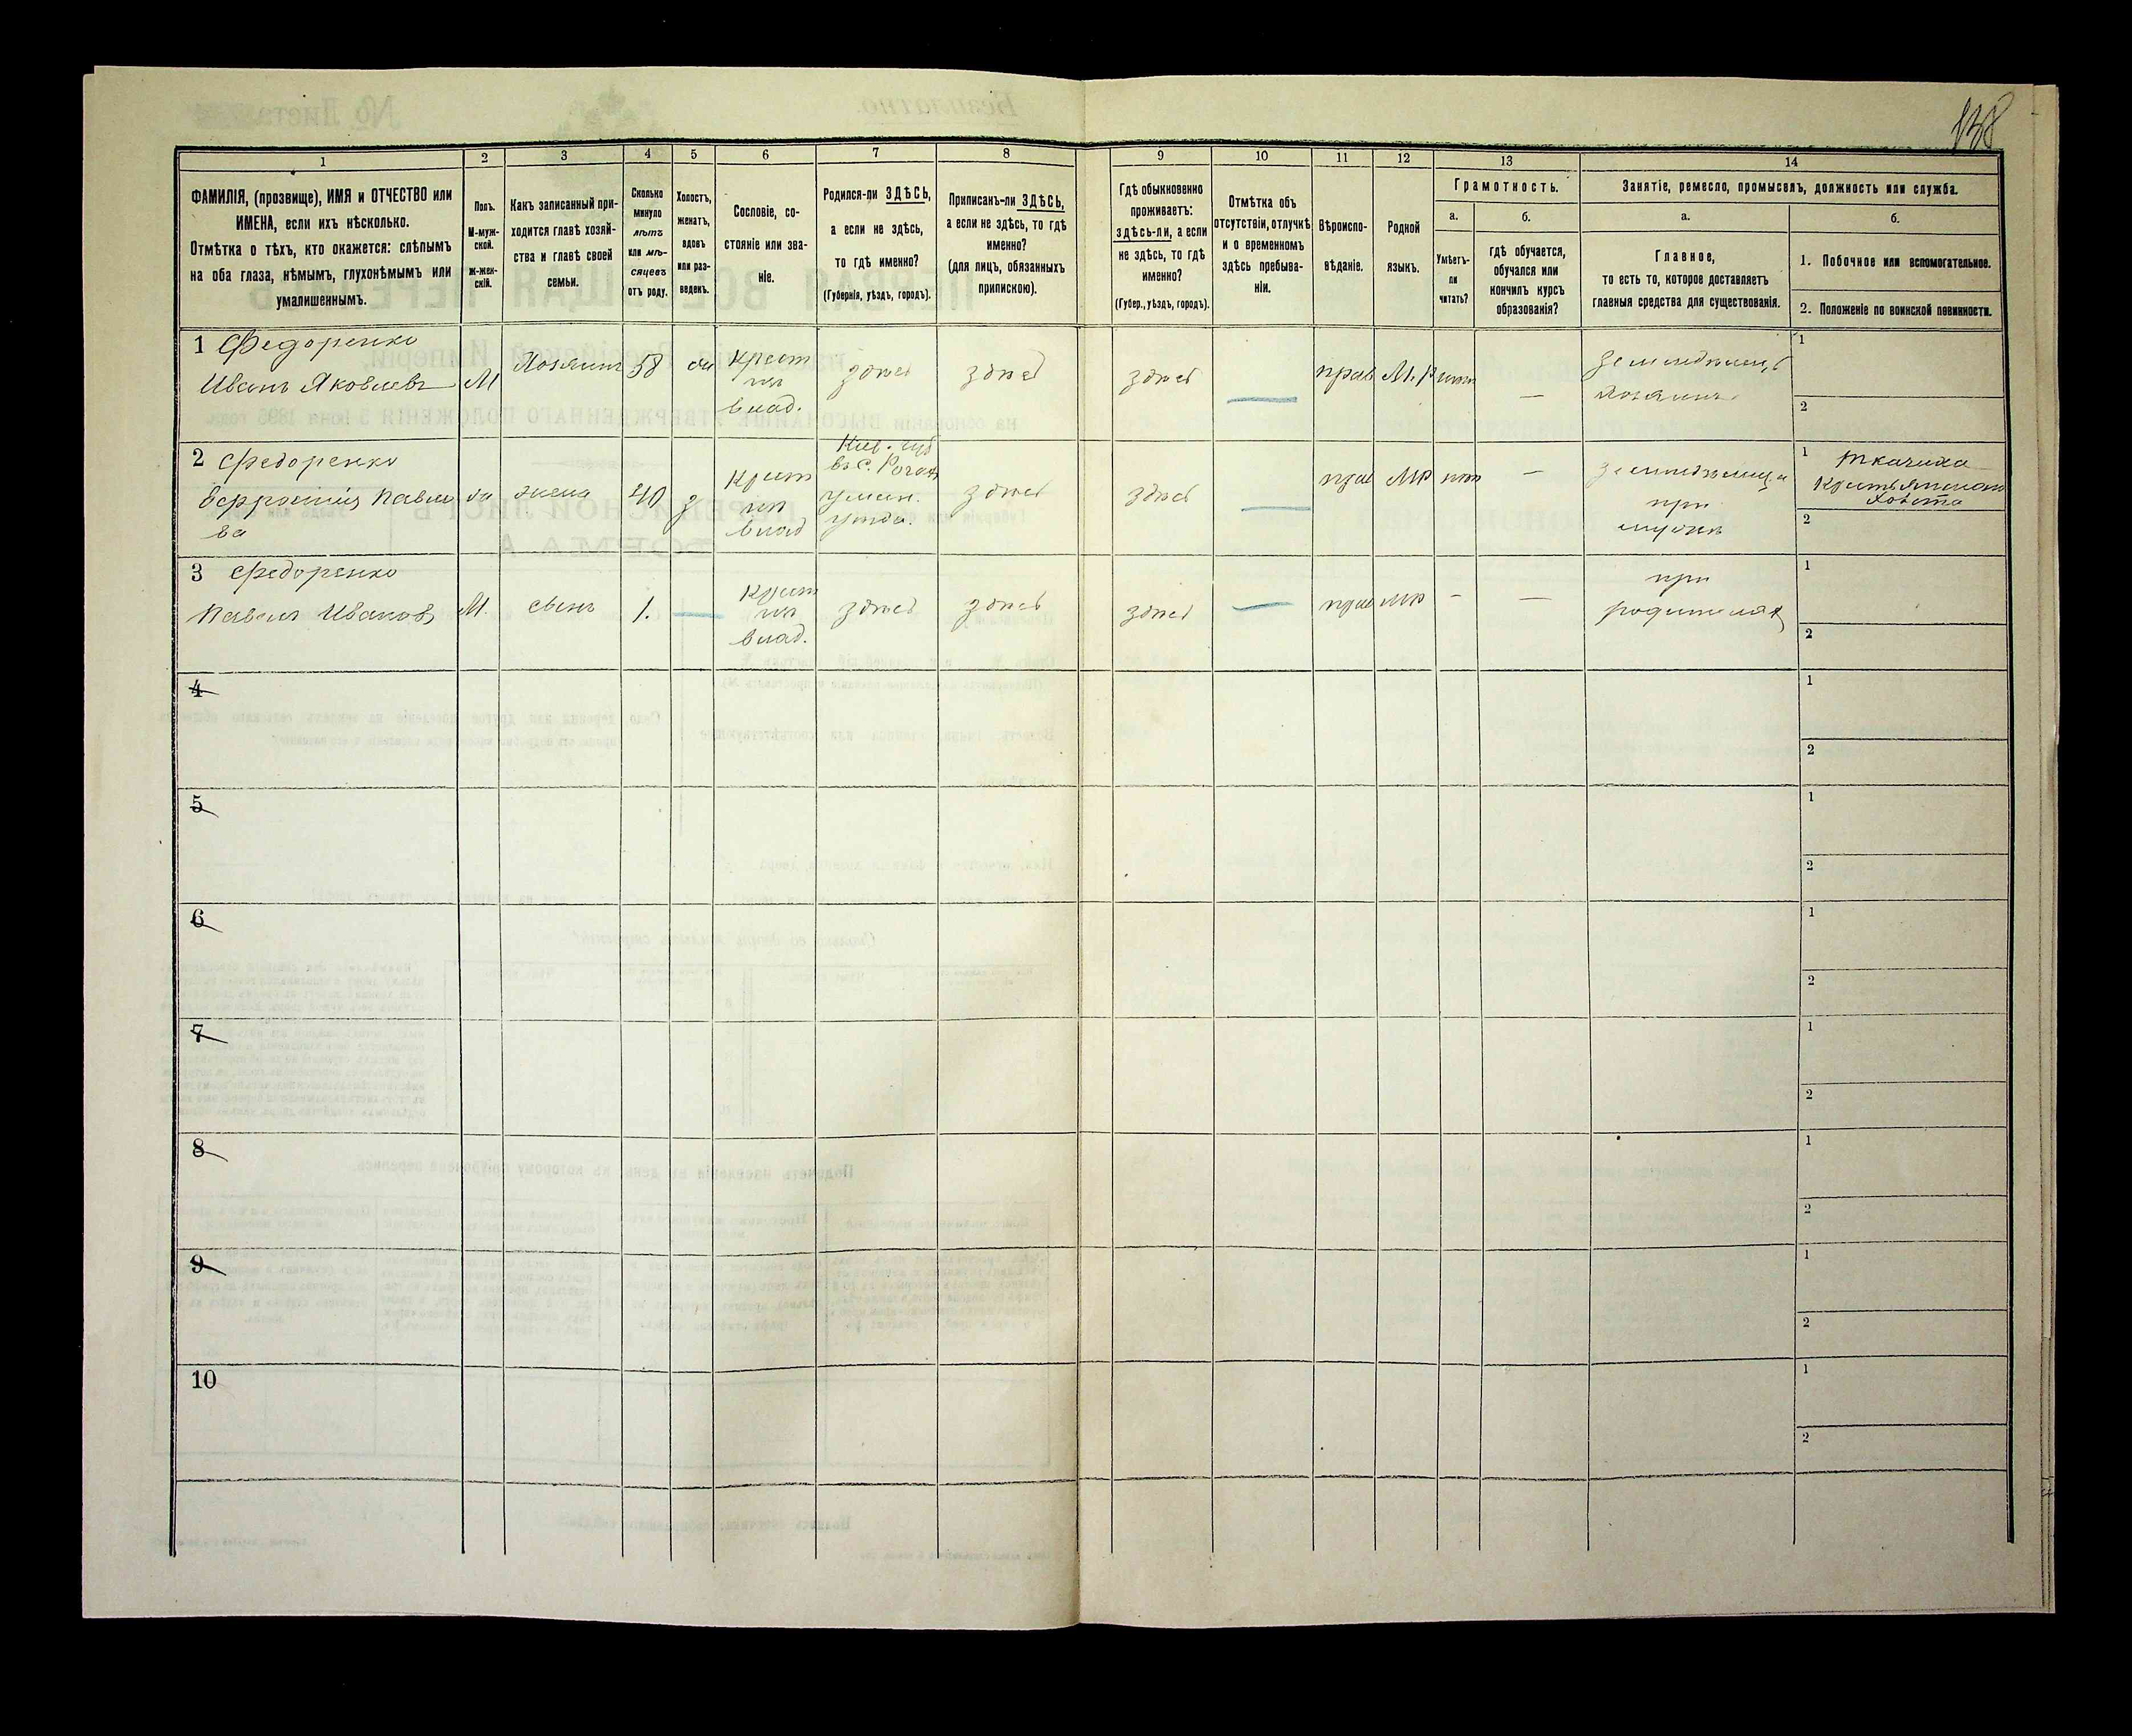 138
1
2
3
4
5
6
7
8
9
10
11
12
13
14
ФАМИЛІЯ, (прозвище), ИМЯ и ОТЧЕСТВО или
ИМЕНА, если ихъ нѣсколько.
Отмѣтка о тѣхъ, кто окажется: слѣпымъ
на оба глаза, нѣмымъ, глухонѣмымъ или
умалишеннымъ.
Полъ.
М-муж-
ской.
ж-жен-
скій.
Какъ записанный при-
ходится главѣ хозяй-
ства и главѣ своей
семьи.
Сколько
минуло
лѣтъ
или мѣ-
сяцевъ
отъ роду.
Холостъ,
женатъ,
вдовъ
или раз-
веденъ.
Сословіе, со-
стояніе или зва-
ніе.
Родился-ли ЗДѢСЬ,
а если не здѣсь,
то гдѣ именно?
(Губернія, уѣздъ, городъ).
Приписанъ-ли ЗДѢСЬ,
а если не здѣсь, то гдѣ
именно?
(для лицъ, обязанныхъ
припискою).
Гдѣ обыкновенно
проживаетъ:
здѣсь-ли, а если
не здѣсь, то гдѣ
именно?
(Губер., уѣздъ, городъ).
Отмѣтка объ
отсутствіи, отлучкѣ
и о временномъ
здѣсь пребыва-
ніи.
Вѣроиспо-
вѣданіе.
Родной
языкъ.
Грамотность.
а.
Умѣетъ-
ли
читать?
б.
гдѣ обучается,
обучался или
кончилъ курсъ
образованія?
Занятіе, ремесло, промыселъ, должность или служба.
а.
Главное,
то есть то, которое доставляетъ
главныя средства для существованія.
б.
1. Побочное или вспомогательное.
2. Положеніе по воинской повинности.
1 Федоренко
Иванъ Яковлевъ
М
Хозяинъ
38
Крест
изъ
влад.
здѣсь
здѣсь
здѣсь
—
прав
М.р
нѣтъ
—
Земледѣлецъ
хозяинъ
1
2
2 Федоренко
Павло
ва
жена
40
Крест
изъ
влад
Киев. губ
въ с.
уман.
уѣзда.
здѣсь
здѣсь
—
прав
МР
нѣтъ
—
земледѣлица
при
мужѣ
1 Ткачиха
2
3 Федоренко
Павелъ Ивановъ
М.
сынъ
1.
—
Крест
изъ
влад.
здѣсь
здѣсь
здѣсь
—
прав
МР
-
—
при
родителяхъ
1
2
4
1
2
5
1
2
6
1
2
7
1
2
8
1
2
9
1
2
10
1
2